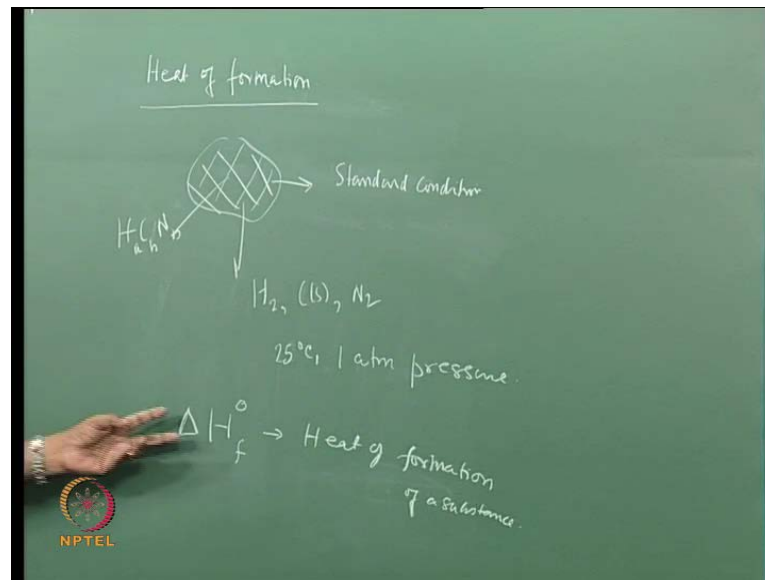 Heat of formation
Standard Condition
HaCbNn
H2, C(s), N2
25°C, 1 atm pressure.
ΔH°f → Heat of formation
of a substance.
NPTEL